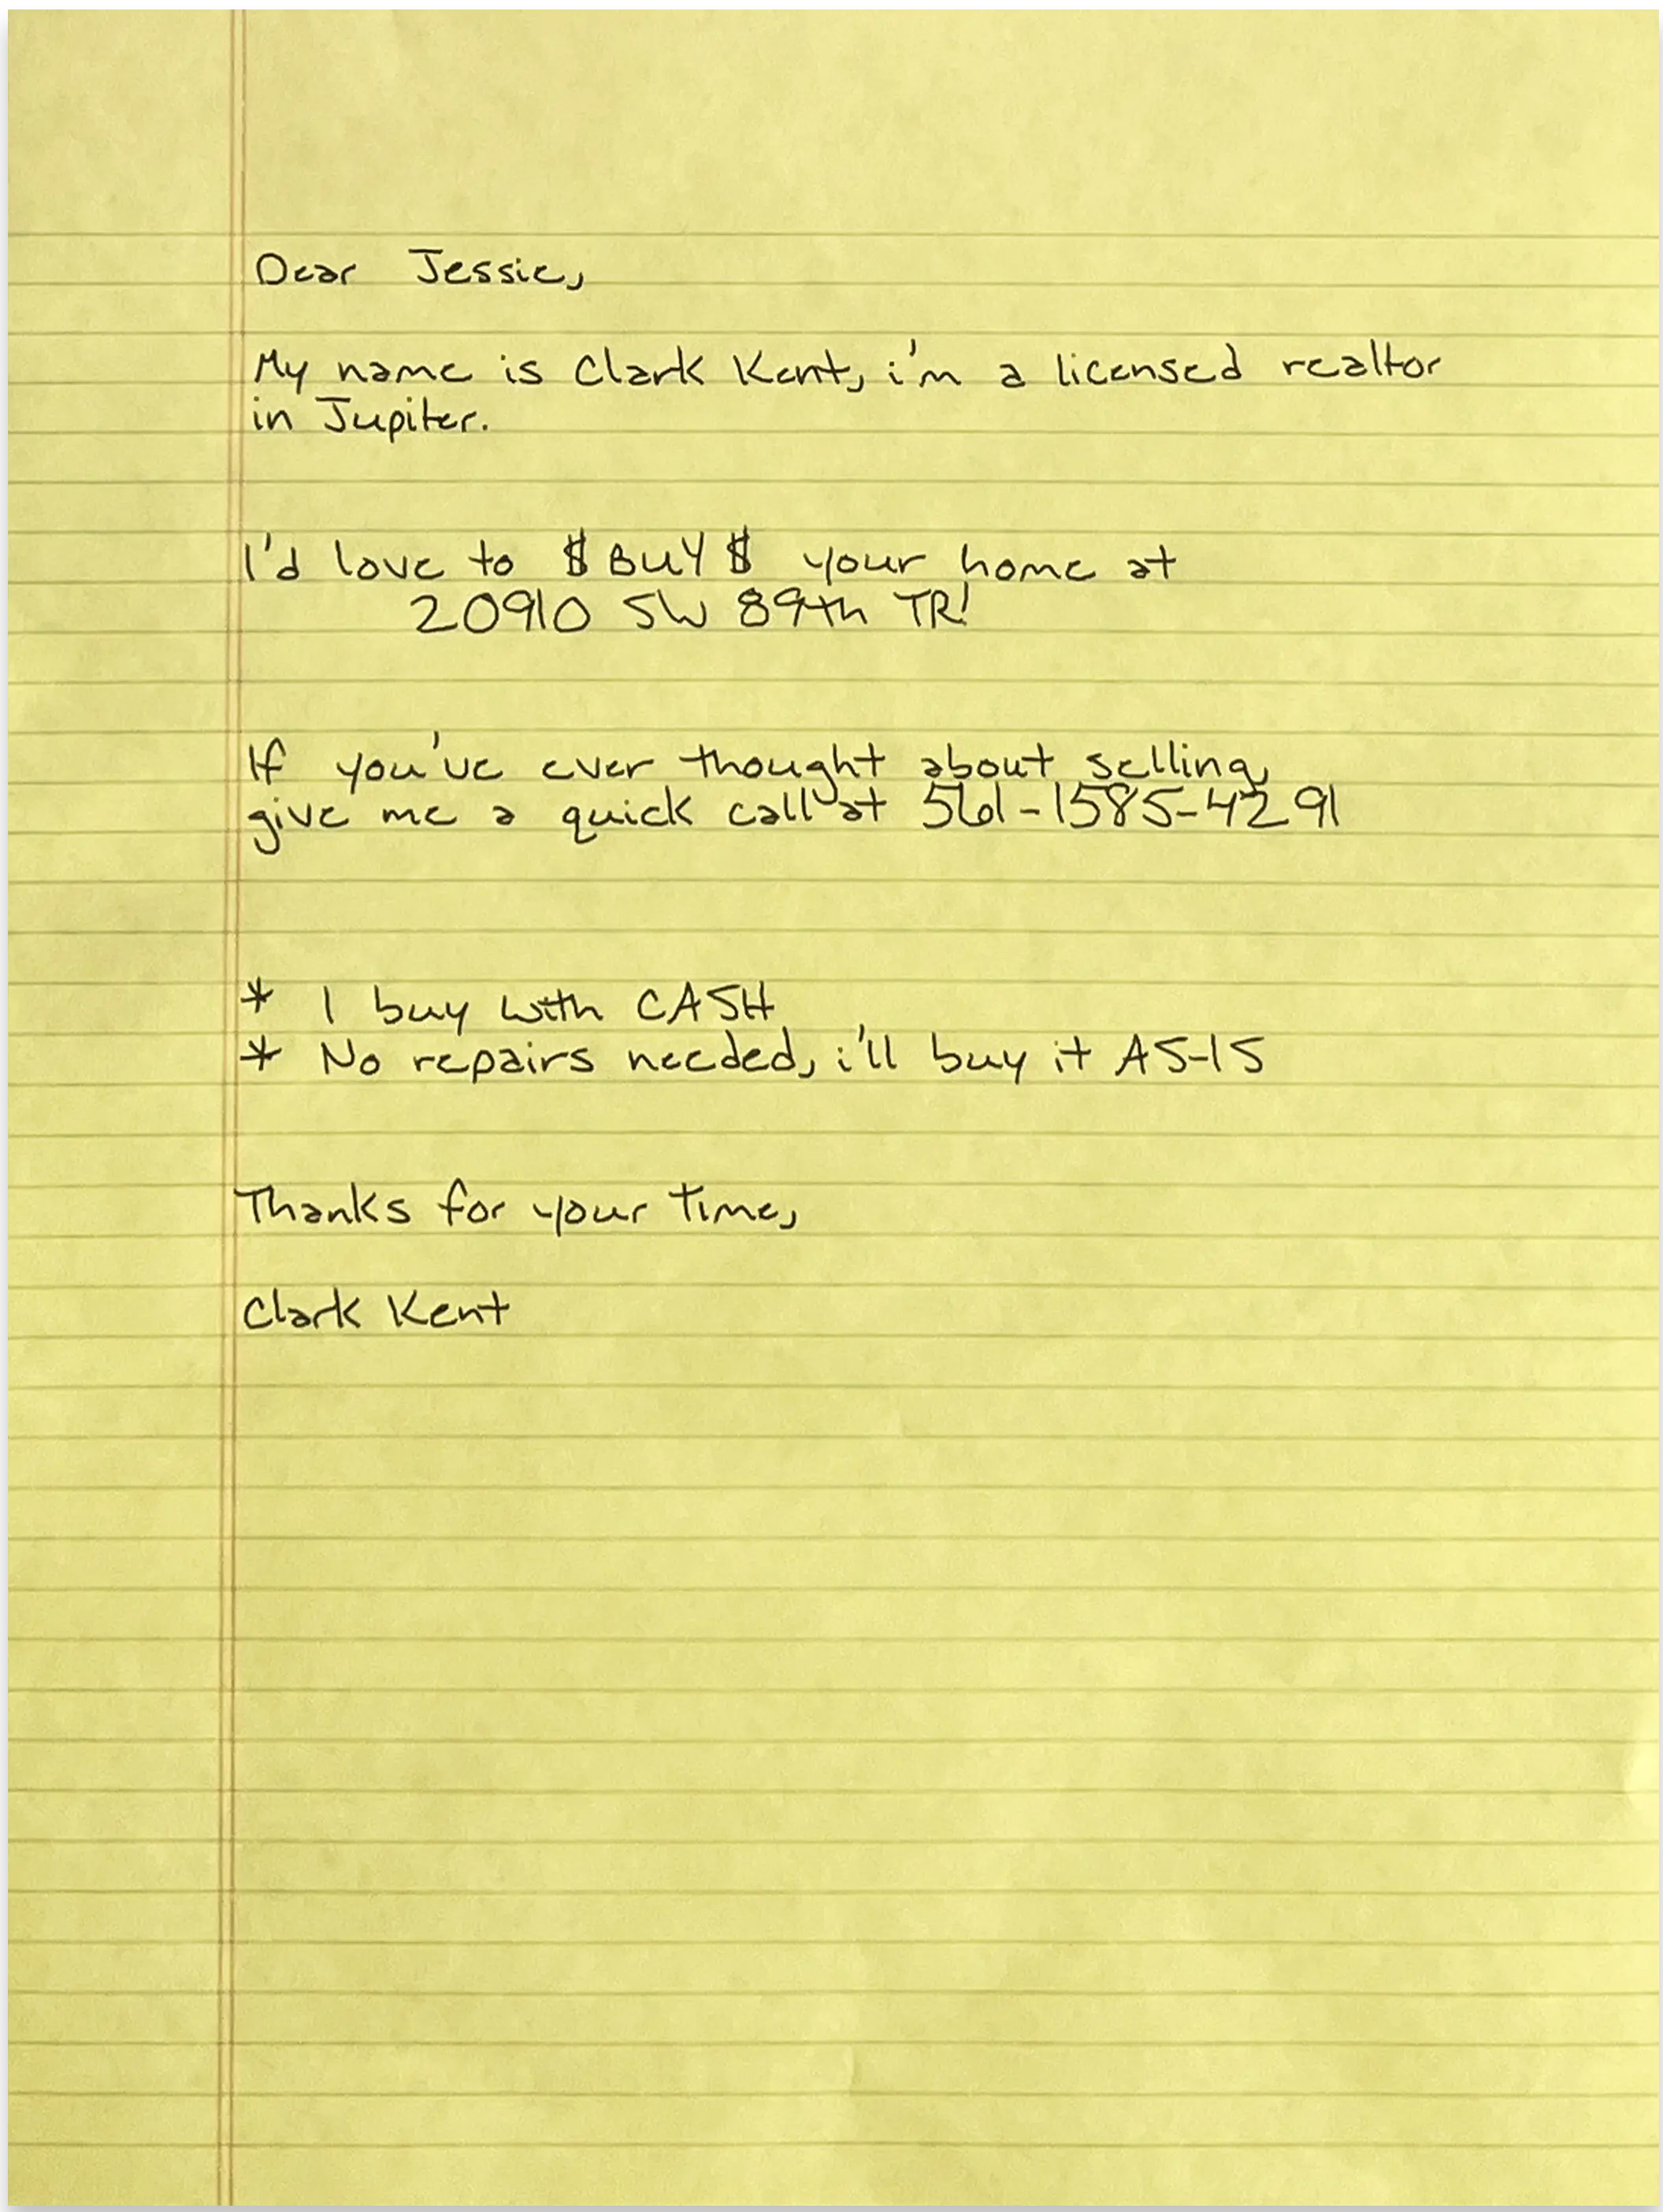 Dear Jessie,
My name is Clark Kent, i'm a licensed realtor
in Jupiter.
I'd love to $BUY$ your home at
20910 SW 89th TR!
If you've ever thought about selling,
give me a quick call at 561-1585-4291
* I buy with CASH
* No repairs needed, i'll buy it AS-IS
Thanks for your time,
Clark Kent